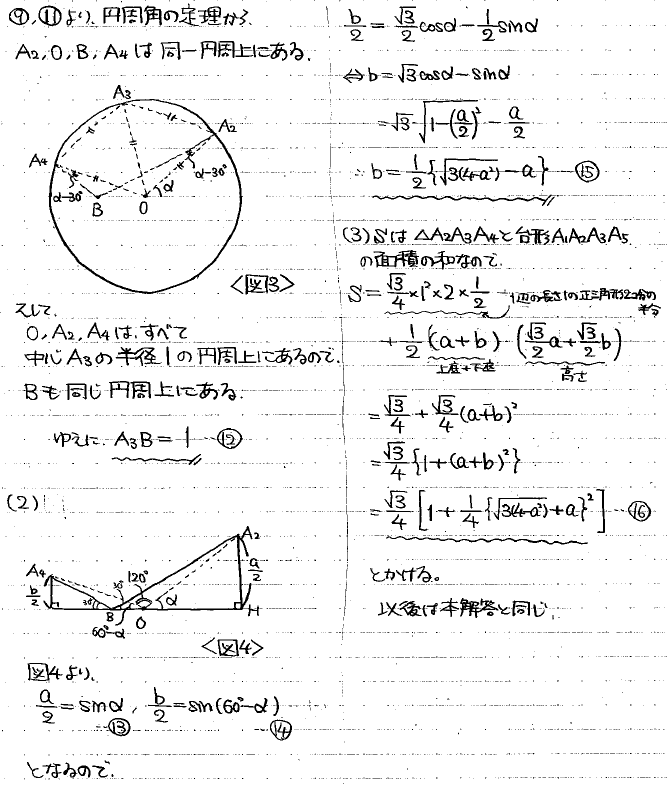 ⑨,⑪より、円周角の定理から、
A₂,O,B,A₄は同一円周上にある。
A₃
A₂
A₄
α-30°
α-30°
α
B
O
<図3>
そして、
O,A₂,A₄は、すべて
中心A₃の半径1の円周上にあるので、
Bも同じ円周上にある。
ゆえに、A₃B=1 …⑫
(2)
A₂
A₄
b/2
a/2
30°
30°
120°
α
B
O
H
60°-α
<図4>
図4より、
a/2=sinα, b/2=sin(60°-α)
…⑬ …⑭
となるので、
b/2=√3/2 cosα-1/2 sinα
⇔b=√3cosα-sinα
=√3·√(1-(a/2)²)-a/2
∴b=1/2{√(3(4-a²))-a} …⑮
(3) Sは△A₂A₃A₄と台形A₁A₂A₃A₅
の面積の和なので、
S=√3/4×1²×2×1/2 ←1辺の長さ1の正三角形2つ分の半分
+1/2(a+b)·(√3/2 a+√3/2 b)
上底+下底 高さ
=√3/4+√3/4(a+b)²
=√3/4{1+(a+b)²}
=√3/4[1+1/4{√(3(4-a²))+a}²] …⑯
とかける。
以後は本解答と同じ.